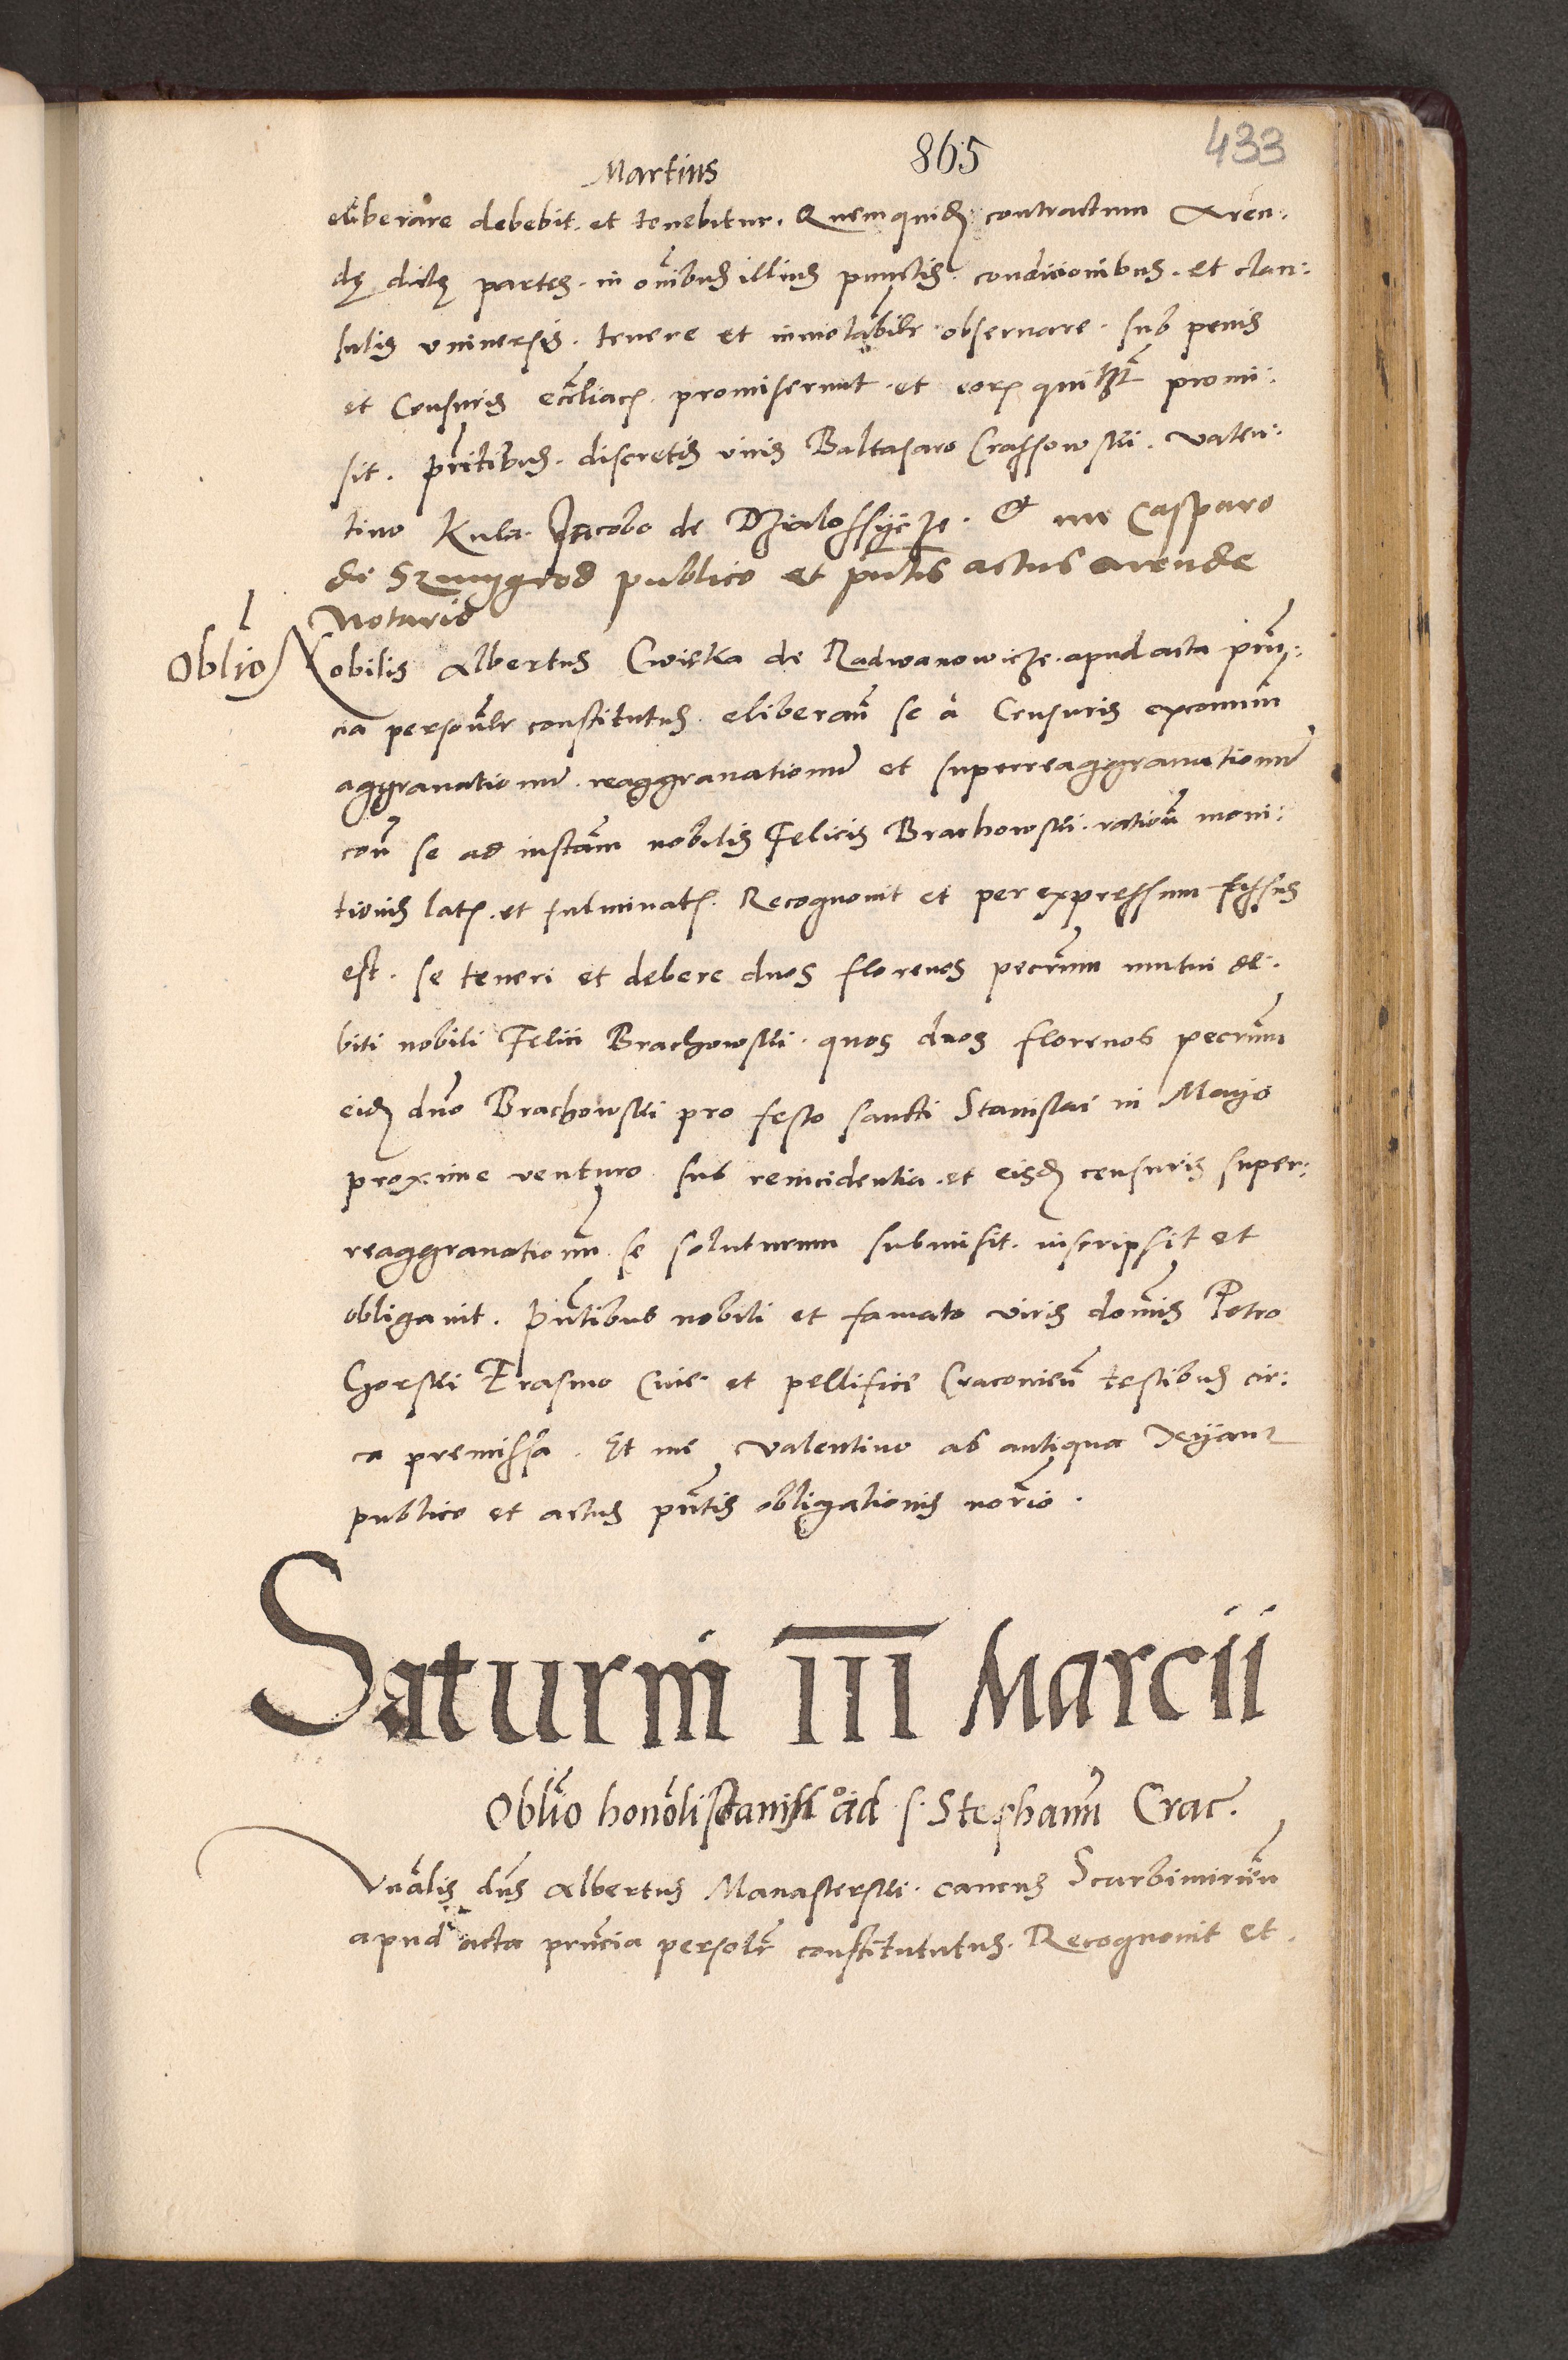 433
865
Martius
eliberare debebit. et tenebitur. Quemquid[em] contractum Aren:
dę dictę partes. in oībus illius punctis. condicionibus. et clau:
sulis vniuersis. tenere et inuiolabilr obseruare. sub penis
et Censuris ecc̄liac̨. promiserunt. et eor̨ quilibet promi:
sit. p̄ntibus. discretis viris Baltasaro Crassowski. Valen:
tino Kula. Jacobo de Dzialossijcze. Et me Casparo
de Szmygrod publico et p̄ntis actus arende
Notario
Obl̄io
Nobilis Albertus Cwiekla de Radwanowicze. apud acta p̄n:
cia personalr constitutus. eliberan̄ se à Censuris excomuni
aggrauationu̅ reaggrauationu̅ et superreaggrauationu̅
con̄ se ad instam nobilis Felicis Brachowski. ratione moni:
tionis lat̨. et fulminat̨. Recognouit et per expressum fassus
est. se teneri et debere duos florenos pecun̄ mutui de:
biti nobili Felici Brachowski. quos duos florenos pecun̄
eid[em] dn̄o Brachowski pro festo sancti Stanislai in Mayo
proxime venturo sub reincidentia. et eisd[em] censuris super:
reaggrauationu̅. se soluturum submisit. inscripsit et
obligauit. p̄ntibus nobili et famato viris domīs Petro
Gorski Erasmo Ciue et pellifice Cracouien̄ testibus cir:
ca premissa. Et me Valentino ab antiqua Xyanz
publico et actus p̄ntis obligationis nor̄io.
Saturni III Marcii
Obl̄io honol̄is ad S. Stephanu̅ Crac.
Vn̄alis dn̄s Albertus Manasterski. cancus Scarbimirien̄
apud acta prn̄cia persolr̄ constitututus. Recognouit et.